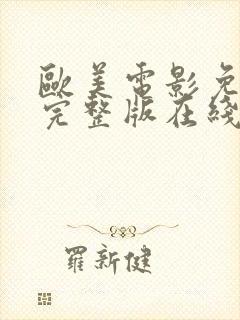 歐美電影免
完整版在綫
羅新健